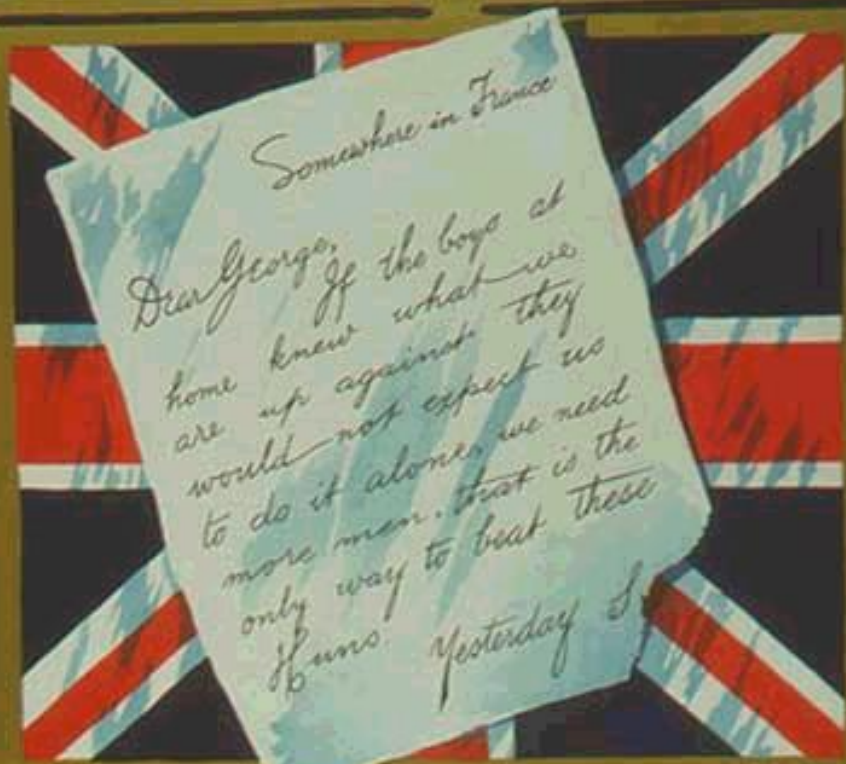 Somewhere in France
Dear George,
If the boys at
home knew what we
are up against they
would not expect us
to do it alone, we need
more men. that is the
only way to beat these
Huns. Yesterday I